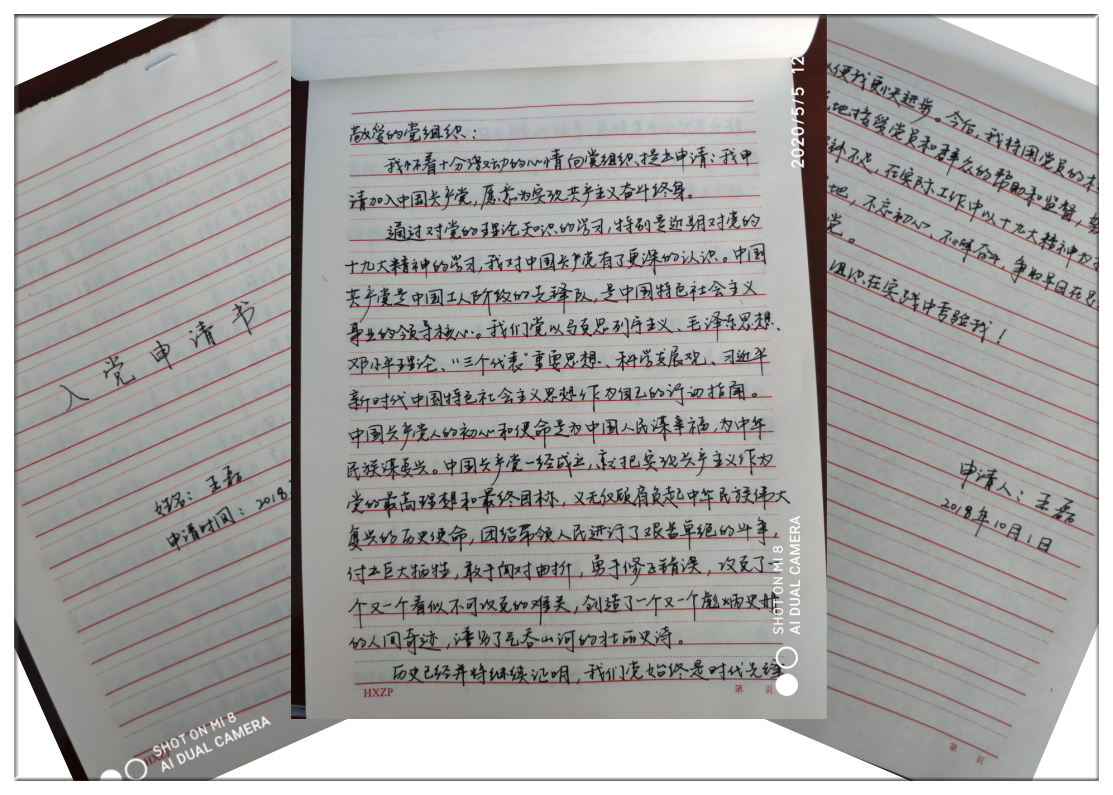 入党申请书
姓名：王磊
申请时间：2018
HXZP
SHOT ON MI 8
AI DUAL CAMERA
敬爱的党组织：
我怀着十分激动的心情向党组织提出申请：我申
请加入中国共产党，愿意为实现共产主义奋斗终身。
通过对党的理论知识的学习，特别是近期对党的
十九大精神的学习，我对中国共产党有了更深的认识。中国
共产党是中国工人阶级的先锋队，是中国特色社会主义
事业的领导核心。我们党以马克思列宁主义、毛泽东思想、
邓小平理论、“三个代表”重要思想、科学发展观、习近平
新时代中国特色社会主义思想作为自己的行动指南。
中国共产党人的初心和使命是为中国人民谋幸福，为中华
民族谋复兴。中国共产党一经成立，就把实现共产主义作为
党的最高理想和最终目标，义无反顾肩负起中华民族伟大
复兴的历史使命，团结带领人民进行了艰苦卓绝的斗争，
付出巨大牺牲，敢于面对曲折，勇于修正错误，攻克了一
个又一个看似不可攻克的难关，创造了一个又一个彪炳史册
的人间奇迹，谱写了气吞山河的壮丽史诗。
历史已经并将继续证明，我们党始终是时代先锋
HXZP
第 页
2020/5/5 12
SHOT ON MI 8
AI DUAL CAMERA
以便我更快进步。今后，我将用党员的标
地接受党员和群众的帮助和监督，努
补不足，在实际工作中以十九大精神为
地，不忘初心，不辱使命，争取早日在思
党。
组织在实践中考验我！
申请人：王磊
2018年10月1日
第 页